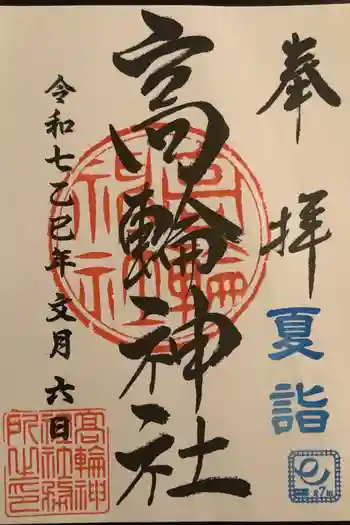 奉拝
夏詣
高輪神社
令和七乙巳年文月六日
高輪神社
高輪神社務所之印